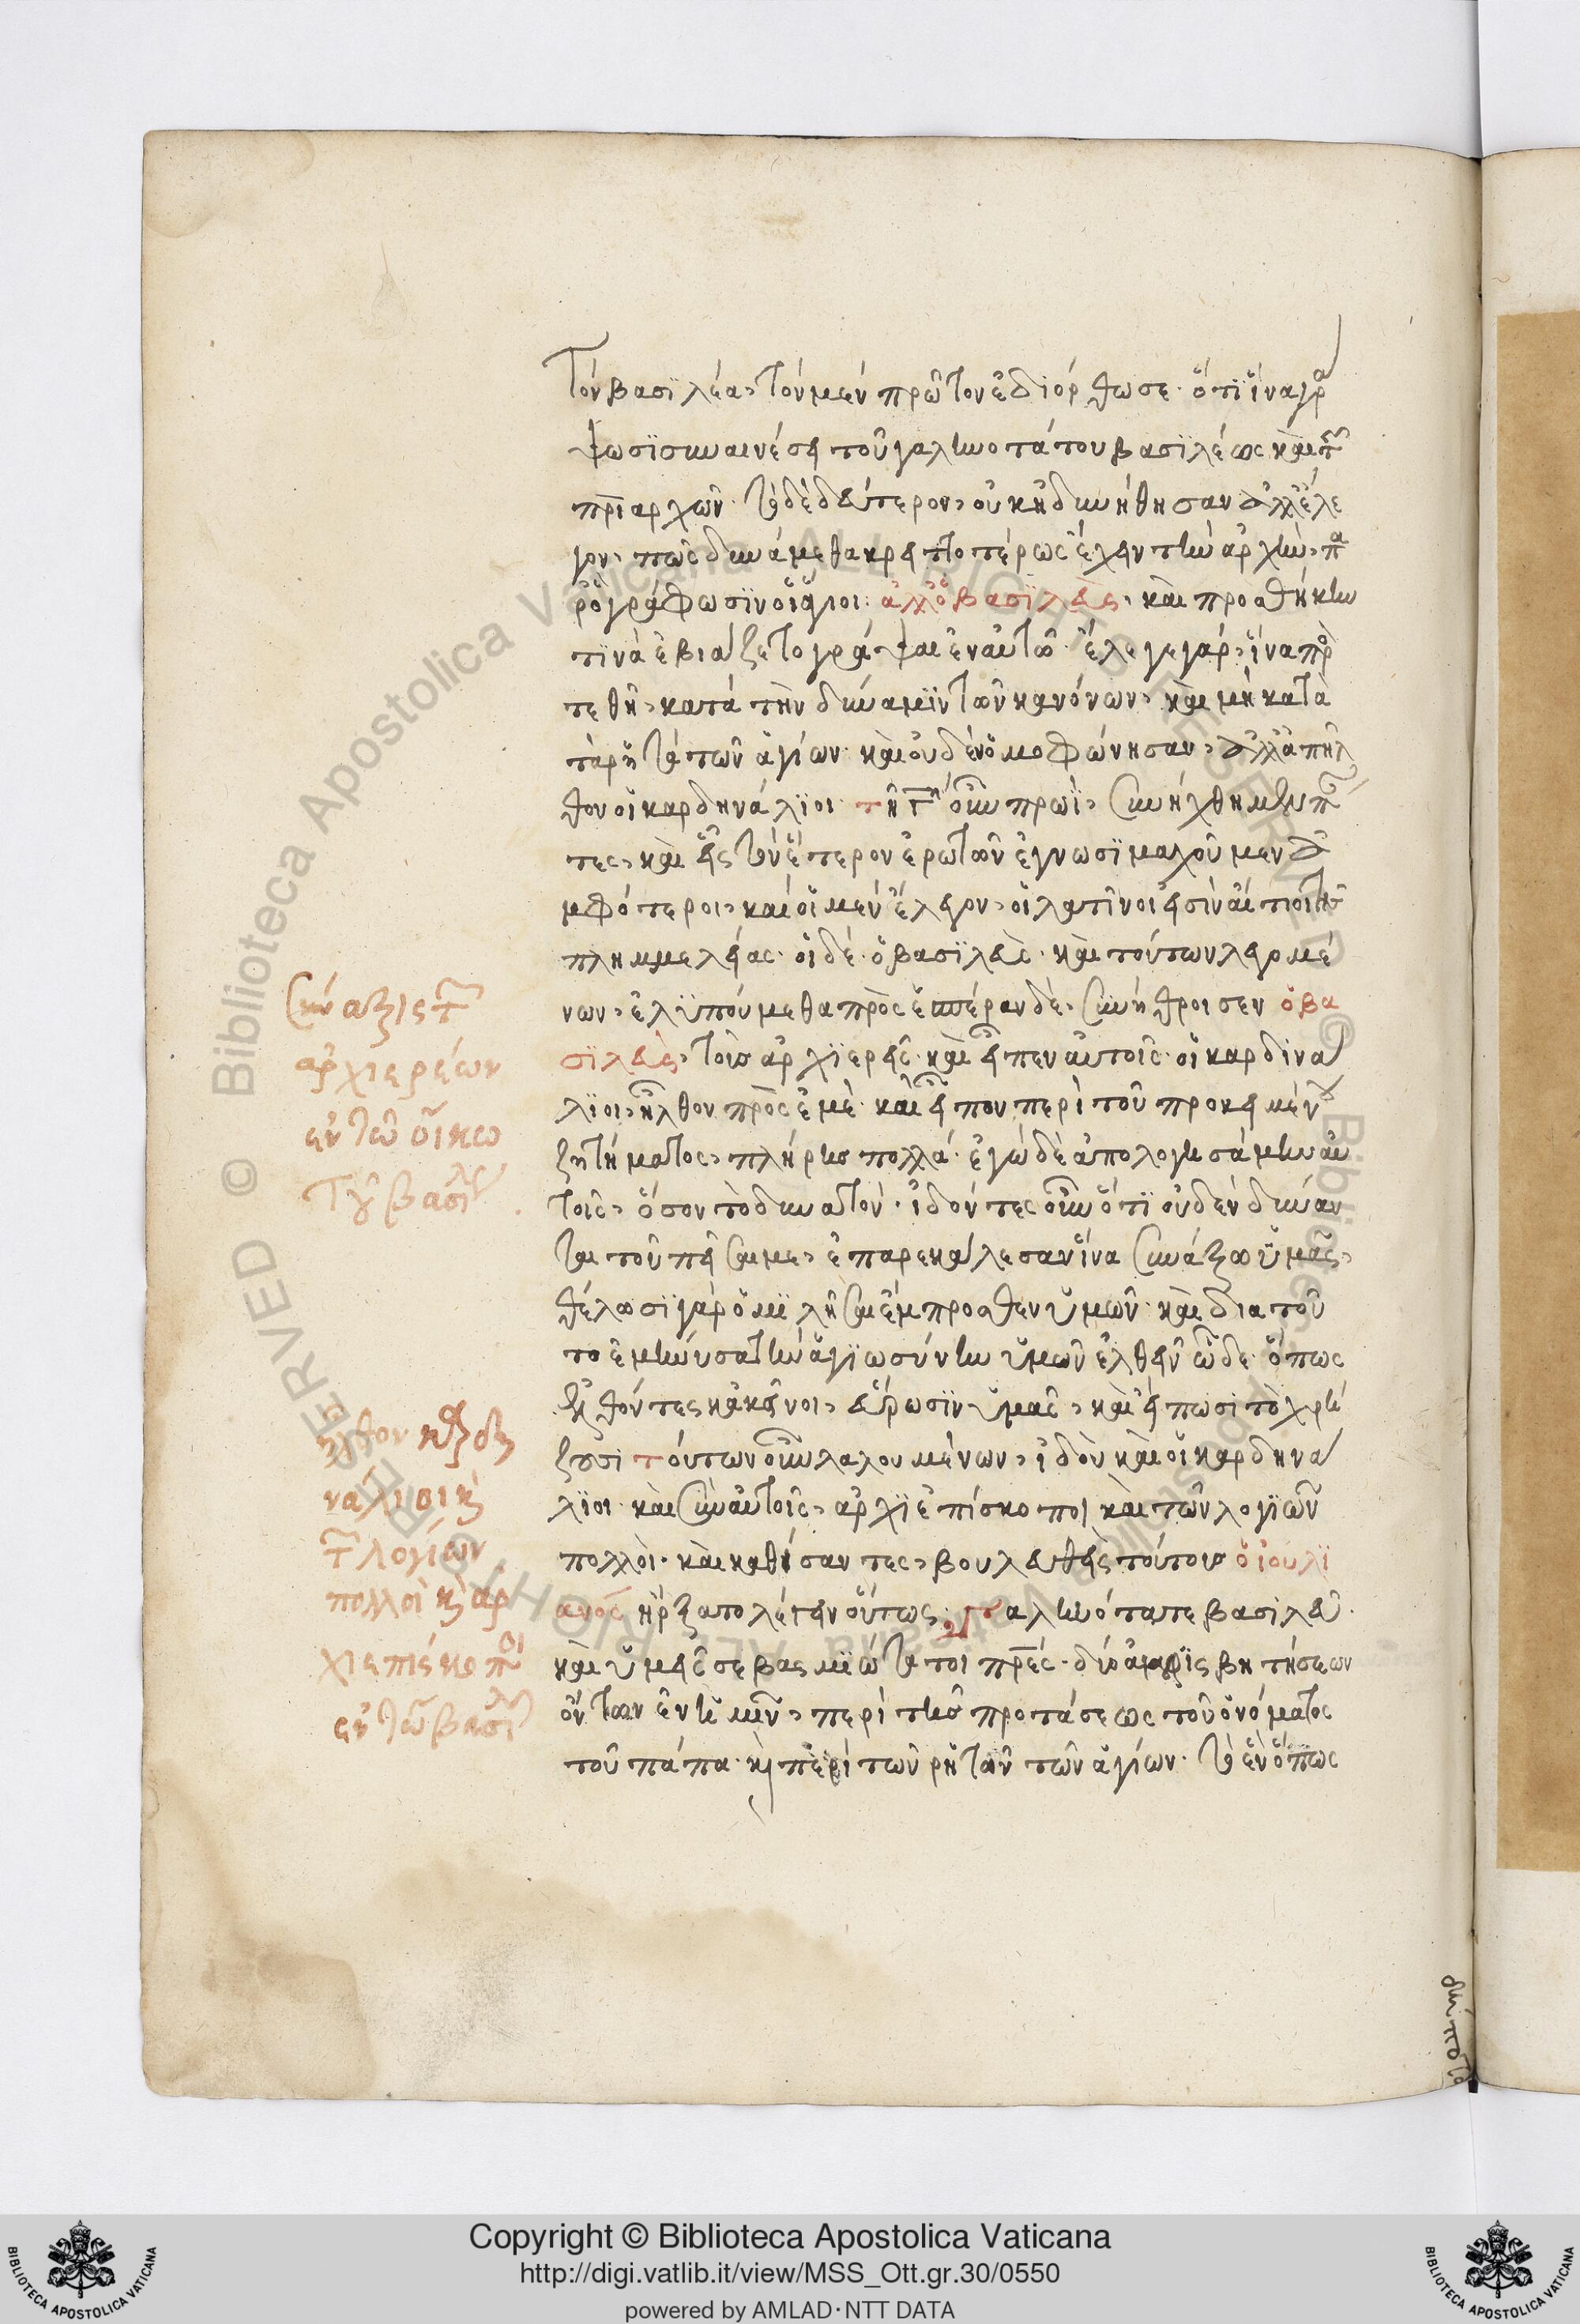 Τὸν βασϊλέα, τὸν μὲν πρῶτον ἐδιόρθωσε· ὅτι ἵνα γρά
ψωσϊ συναινέσει τοῦ γαληνοτάτου βασϊλέως καὶ τῶν
πριαρχῶν· τὸ δὲ δεύτερον, οὐκ ἠδυνήθησαν ἀλλ' ἔλε
γον, πῶς δυνάμεθα κρειττοτέρως ἔχειν τὴν ἀρχὴν, πα
ρ' ὃ γράφωσϊν οἱ ἅγιοι· ἀλλ' ὁ βασϊλεὺς, καὶ προσθήκην
τϊνὰ ἐβιάζετο γράψαι ἐν αὐτῶ· ἔλεγε γάρ, ἵνα προ
τεθῆ, κατὰ τὴν δύναμϊν τῶν κανόνων, καὶ μὴ κατὰ
τὰ ρητὰ τῶν ἁγίων· καὶ οὐδὲν ὁμοφώνησαν, ἀλλ' ἀπῆλ
θον οἱ καρδηνάλϊοι· τῆ γῃ οὖν πρωῒ, συνήχθημεν πάν
τες, καὶ εἷς τὸν ἕτερον ἐρωτῶν ἐγνωσϊμαχοῦμεν ἀ
μφότεροι, καὶ οἱ μὲν ἔλεγον, οἱ λατῖνοι εἰσὶν αἴτιοι τῆς
πλημμελείας· οἱ δὲ· ὁ βασϊλεὺς· καὶ τούτων λεγομέ
νων, ἐλϋπούμεθα πρὸς ἑσπέραν δὲ, συνήθροισεν ὁ βα
σϊλεὺς, τοὺς ἀρχϊερεῖς· καὶ εἶπεν αὐτοῖς· οἱ καρδινά
λϊοι, ἦλθον πρὸς ἐμὲ· καὶ εἶπον περὶ τοῦ προκειμένου
ζητήματος, πλήρης πολλά· ἐγὼ δὲ ἀπολογησάμην αὐ
τοῖς, ὅσον τὸ δυνατόν· ἰδόντες οὖν ὅτϊ οὐδὲν δύναν
ται τοῦ πεῖσαι με, ἐπαρεκάλεσαν ἵνα συνάξω ὑμᾶς,
θέλωσϊ γὰρ ὁμϊλῆσαι ἔμπροσθεν ὑμῶν· καὶ δια τοῦ
το ἐμήνυσα τὴν ἁγϊωσύνην ὑμῶν ἐλθεῖν ὧδε· ὅπως
ἐλθόντες κἀκεῖνοι, εὕρωσϊν ὑμᾶς, καὶ εἴπωσι τὸ χρή
ζουσι τούτων οὖν λαλουμένων, ἰδοὺ καὶ οἱ καρδηνά
λϊοι· καὶ σὺν αὐτοῖς, ἀρχϊεπίσκοποι καὶ τῶν λογϊων
πολλοὶ· καὶ καθίσαντες, βουλευθεὶς τούτοις ὁ ἰουλϊ
ανός ἤρξατο λέγειν οὕτως· γαληνότατε βασιλεῦ·
καὶ ὑμεῖς σεβασμϊώτατοι πρες· δύο ἀμφϊσβητήσεων
ὄντων ἐν ἡμῖν, περὶ τῆς προτάσεως τοῦ ὀνόματος
τοῦ πάπα· καὶ περὶ τῶν ρητῶν τῶν ἁγίων· τὸ ἓν ὅπως
Σύναξις τῶν
ἀρχιερέων
ἐν τῶ οἴκω
τοῦ βασιλέως
ἦλθον καρδη
νάλιοι καὶ
τῶν λογίων
πολλοὶ καὶ ἀρ
χιεπίσκοποι
ἐν τῶ βασιλεῖ
Copyright © Biblioteca Apostolica Vaticana
http://digi.vatlib.it/view/MSS_Ott.gr.30/0550
powered by AMLAD·NTT DATA